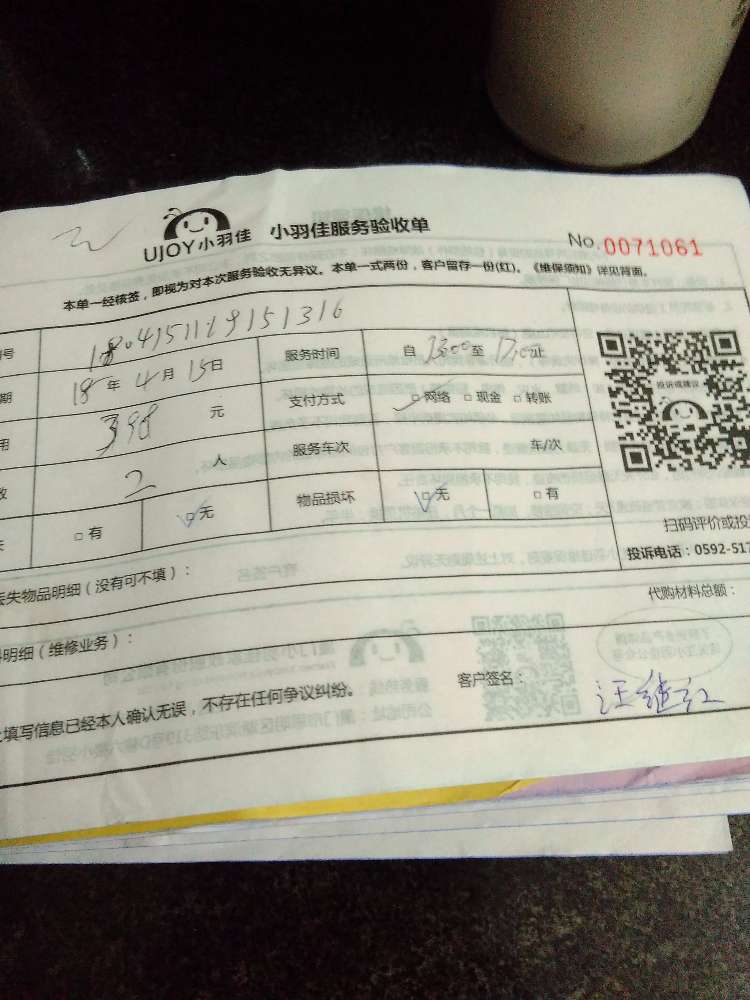 UJOY小羽佳 小羽佳服务验收单
No.0071061
本单一经核签，即视为对本次服务验收无异议。本单一式两份，客户留存一份(红)。《维保须知》详见背面。
号 180415119151316
期 18年4月15日 服务时间 自13:00至17:00止
用 398元 支付方式 □网络 □现金 □转账
数 2人 服务车次 车/次
□有 □无 物品损坏 □无 □有
投诉或建议
扫码评价或投
投诉电话：0592-517
丢失物品明细（没有可不填）：
代购材料总额：
明细（维修业务）：
填写信息已经本人确认无误，不存在任何争议纠纷。
客户签名： 汪继红